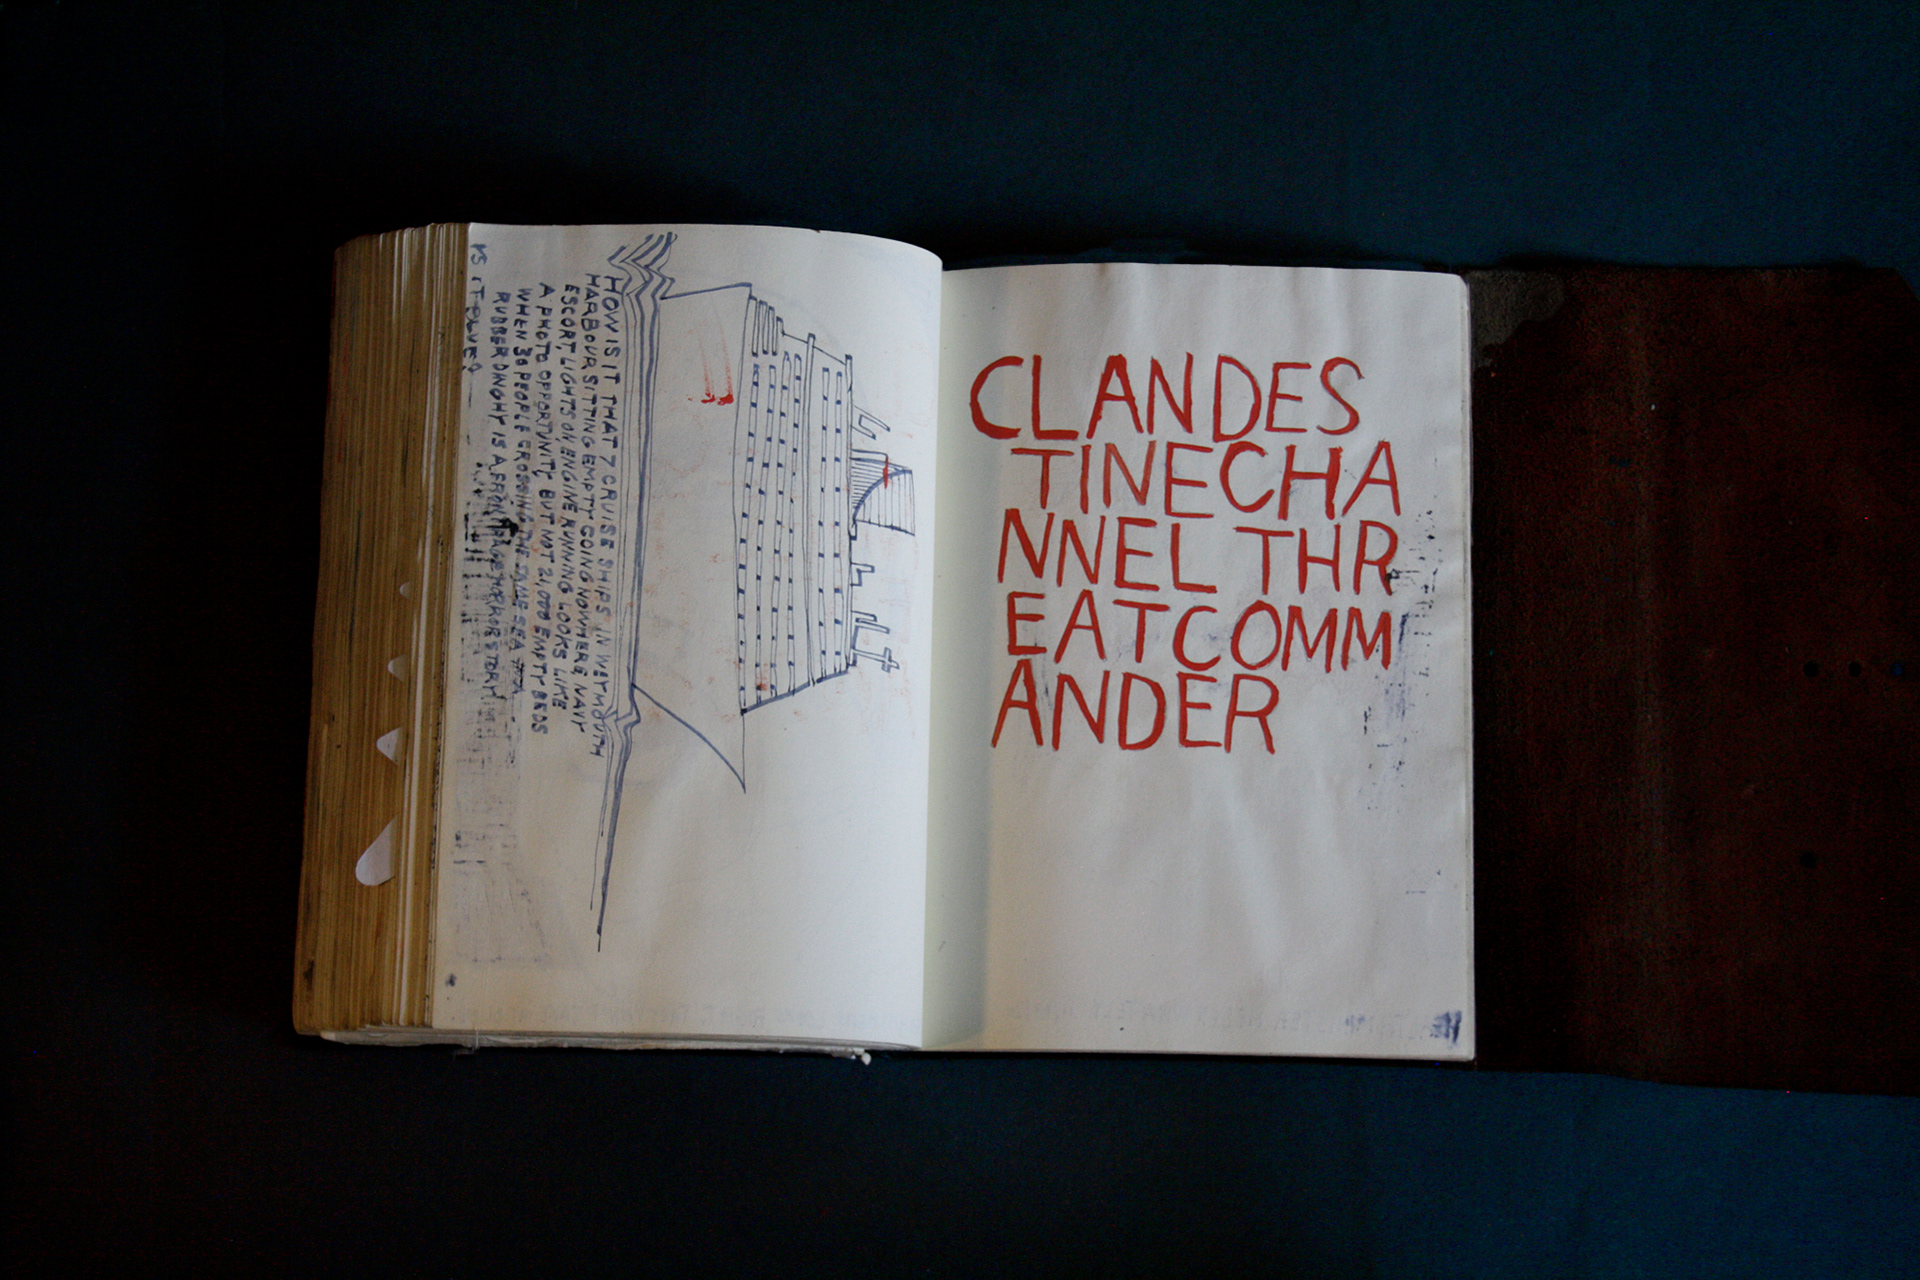 HOW IS IT THAT 7 CRUISE SHIPS IN WEYMOUTH
HARBOUR SITTING EMPTY GOING NOWHERE, NAVY
ESCORT, LIGHTS ON, ENGINE RUNNING LOOKS LIKE
A PHOTO OPPORTUNITY, BUT NOT 21,000 EMPTY BEDS
WHEN 30 PEOPLE CROSSING THE SAME SEA
RUBBER DINGHY IS A FRONT PAGE HORROR STORY
CLANDES
TINECHA
NNEL THR
EATCOMM
ANDER